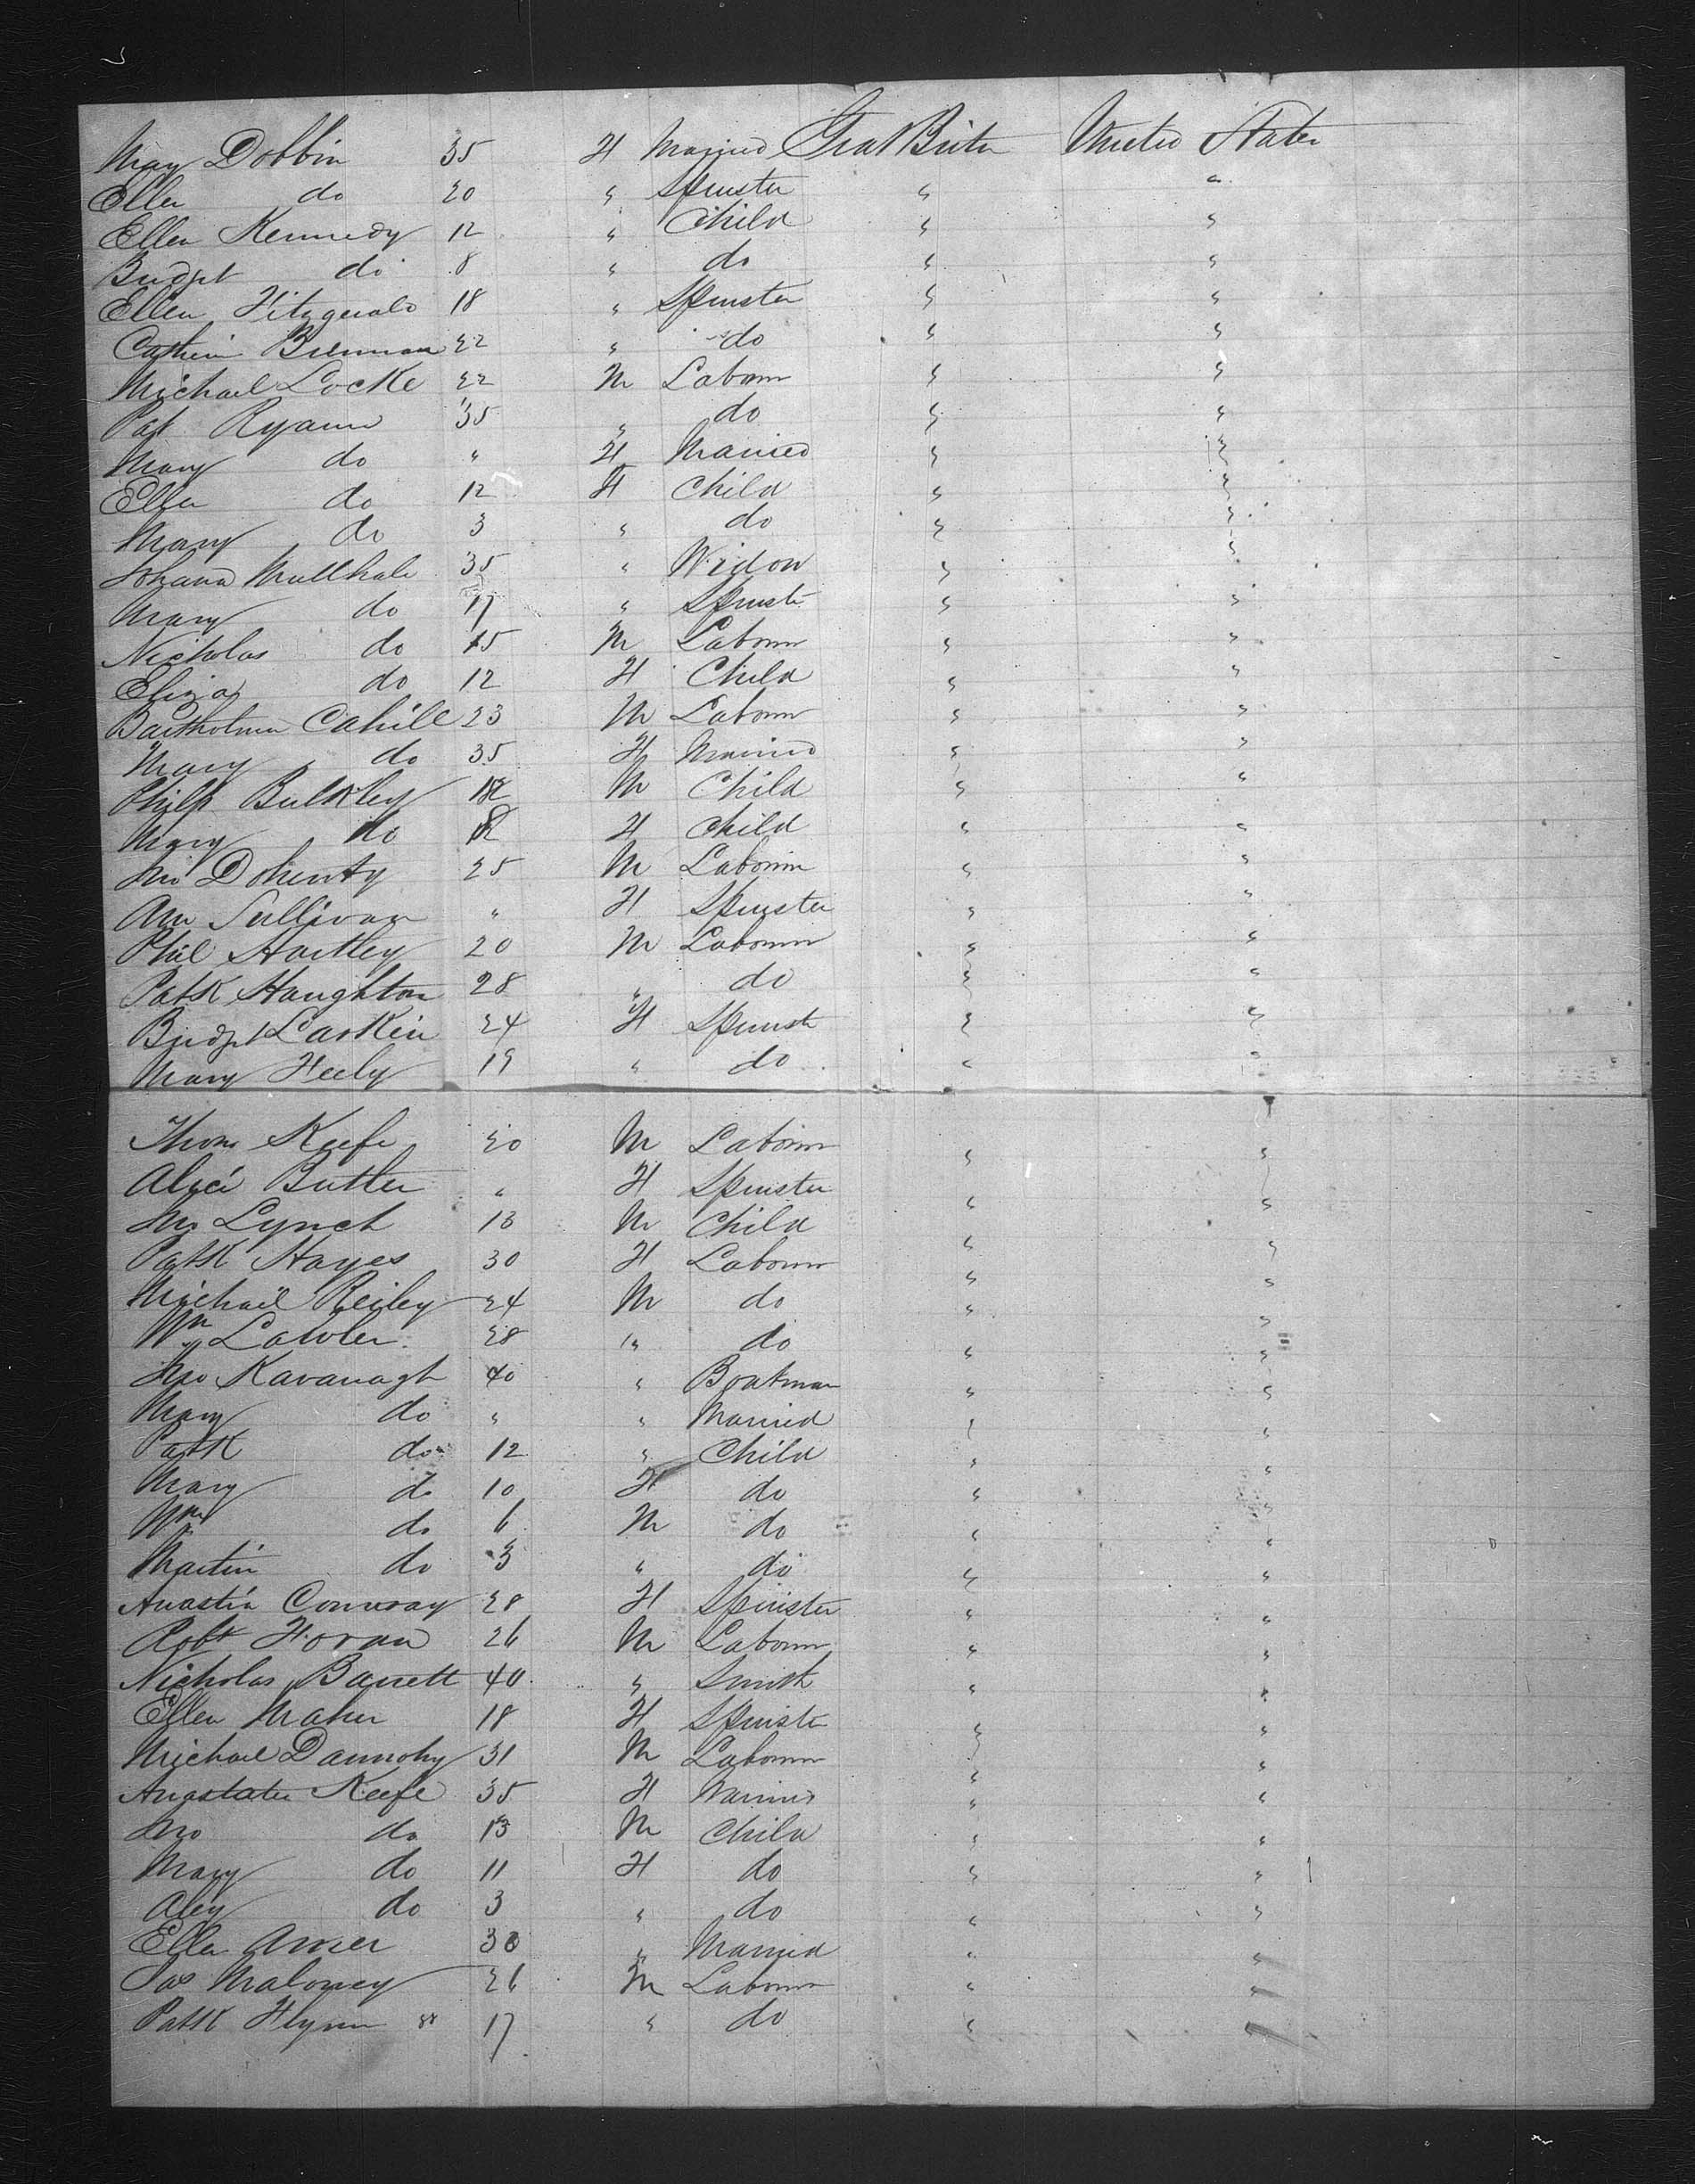 Mary Dobbin 35 F Married Great Britn United States
Ellen do 20 " Spinster " "
Ellen Kennedy 12 " Child " "
Bridget do 8 " do " "
Ellen Fitzgerald 18 " Spinster " "
Catherin Brennan 22 " do " "
Michael Locke 22 M Labourer " "
Pat Ryann 35 " do " "
Mary do " F Married " "
Ellen do 12 F Child " "
Mary do 3 " do " "
Johana Mullhale 35 " Widow " "
Mary do 17 " Spinster " "
Nicholas do 15 M Labourer " "
Eliza do 12 F Child " "
Bartholmew Cahill 23 M Labourer " "
Mary do 35 F Married " "
Philp Bulkley 12 M Child " "
Mary do F Child " "
Jno Doherty 25 M Labourer " "
Ann Sullivan " F Spinster " "
Phil Hartley 20 M Labourer " "
Patk Haughton 28 " do " "
Bridget Larkin 24 F Spinster " "
Mary Feely 19 " do " "
Thom Keefe 20 M Labourer " "
Alice Butler " F Spinster " "
Jno Lynch 13 M Child " "
Patk Hayes 30 F Labourer " "
Michail Reiley 24 M do " "
Wm Lawler 28 " do " "
Jno Kavanagh 40 " Boatman " "
Mary do " " Married " "
Patk do 12 " Child " "
Mary do 10 F do " "
Wm do 6 M do " "
Martin do 3 " do " "
Anastia Conway 28 F Spinster " "
Robt Horan 26 M Labourer " "
Nicholas Barrett 40 " Smith " "
Ellen Maher 18 F Spinster " "
Michael Dannohy 31 M Labourer " "
Anastatia Keefe 35 F Married " "
Jno do 13 M Child " "
Mary do 11 F do " "
Aley do 3 " do " "
Ellen 30 " Married " "
Jas Maloney 26 M Labourer " "
Patk Flynn 17 " do " "